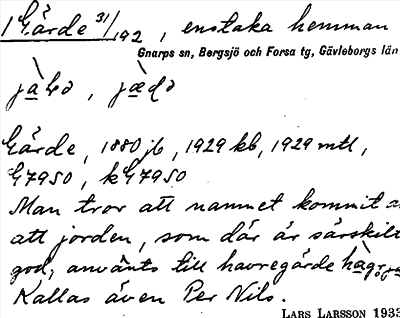 1 Gärde 31/192, enstaka hemman
Gnarps sn, Bergsjö och Forsa tg, Gävleborgs län
Gärde, 1880 jb, 1929 kb, 1929 mtl,
G7950, kG7950
Man tror att namnet kommit a
att jorden, som där är särskilt
god, använts till havregärde
Kallas även Per Nils.
LARS LARSSON 1933